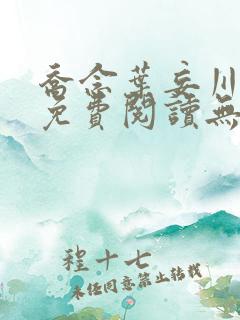 喬念葉妄川
免費閱讀無
程十七
未经同意禁止转载